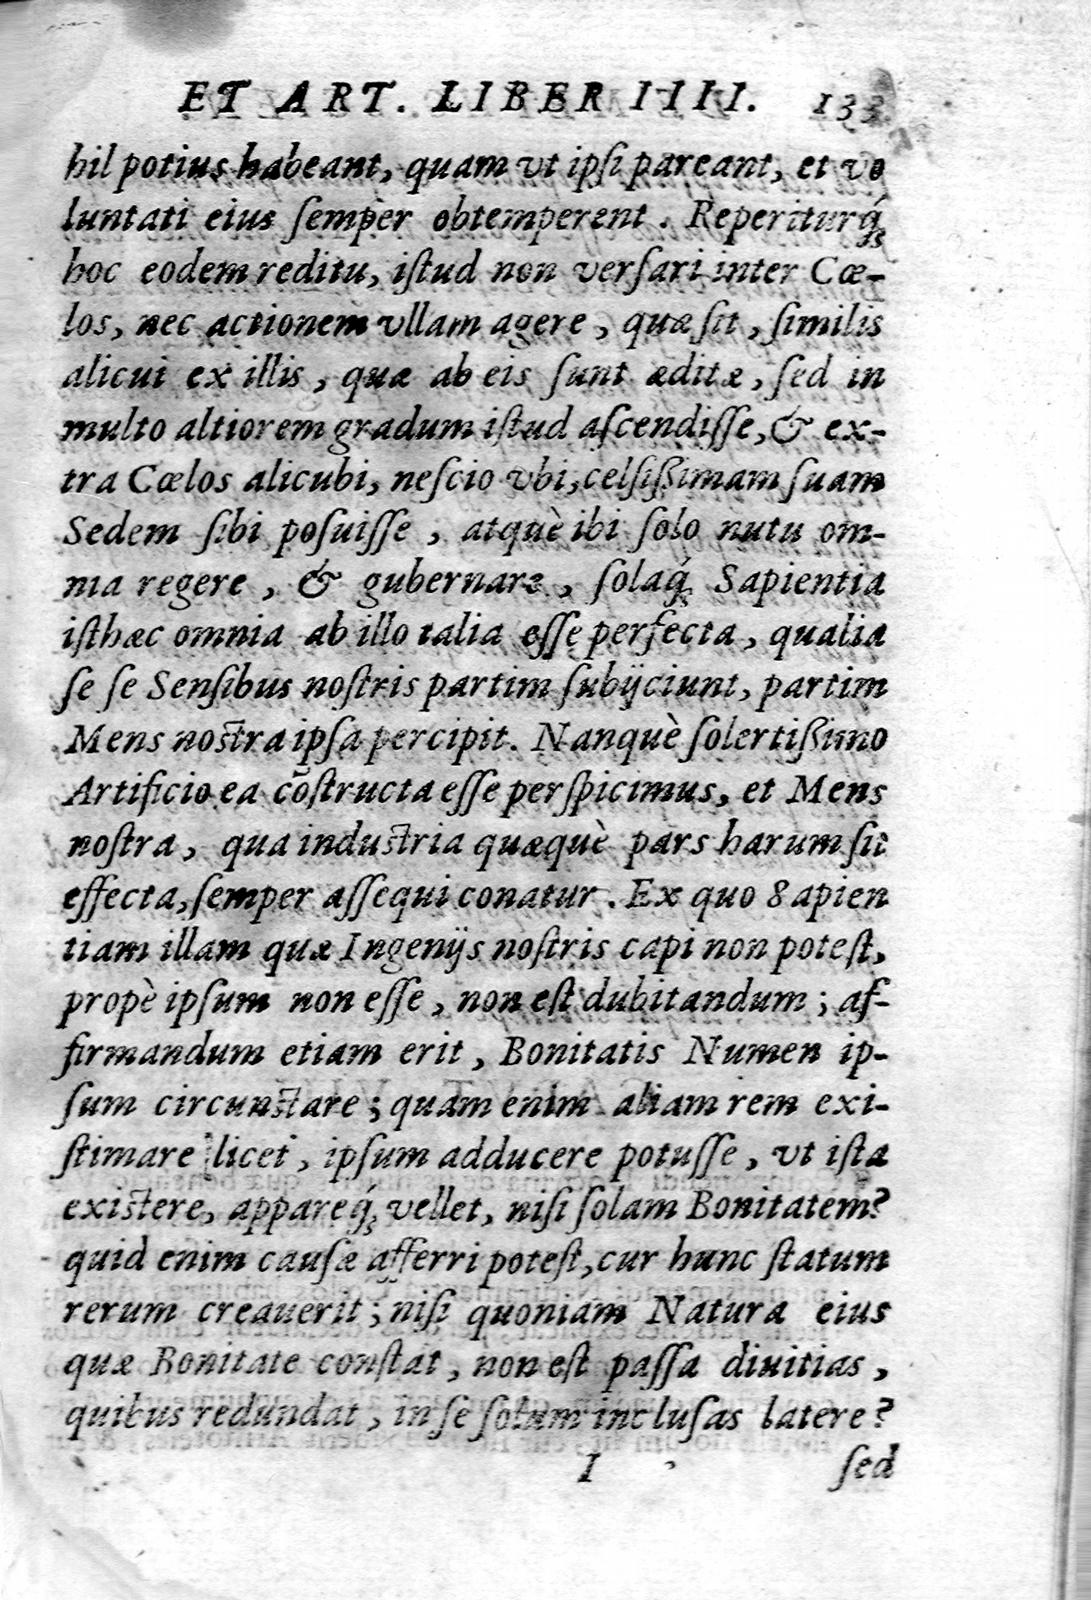 ET ART. LIBER IIII. 133
hil potius habeant, quam vt ipſi pareant, et vo
luntati eius ſemper obtemperent. Reperiturq́;
hoc eodem reditu, iſtud non verſari inter Cœ-
los, nec actionem vllam agere, quæ ſit, ſimilis
alicui ex illis, quæ ab eis ſunt æditæ, ſed in
multo altiorem gradum iſtud aſcendiſſe, & ex-
tra Cœlos alicubi, neſcio vbi, celſiſſimam ſuam
Sedem ſibi poſuiſſe, atquè ibi ſolo nutu om-
nia regere, & gubernare, ſolaq́; Sapientia
iſthæc omnia ab illo talia eſſe perfecta, qualia
ſe ſe Senſibus noſtris partim ſubijciunt, partim
Mens noſtra ipſa percipit. Nanquè ſolertiſſimo
Artificio ea cōſtructa eſſe perſpicimus, et Mens
noſtra, qua induſtria quæquè pars harum ſit
effecta, ſemper aſſequi conatur. Ex quo Sapien
tiam illam quæ Ingenijs noſtris capi non poteſt,
propè ipſum non eſſe, non eſt dubitandum; af-
firmandum etiam erit, Bonitatis Numen ip-
ſum circunſtare; quam enim aliam rem exi-
ſtimare licet, ipſum adducere potuſſe, vt iſta
exiſtere, appareq́; vellet, niſi ſolam Bonitatem?
quid enim cauſæ afferri poteſt, cur hunc ſtatum
rerum creauerit; niſi quoniam Natura eius
quæ Bonitate conſtat, non eſt paſſa diuitias,
quibus redundat, in ſe ſolum incluſas latere?
I ſed